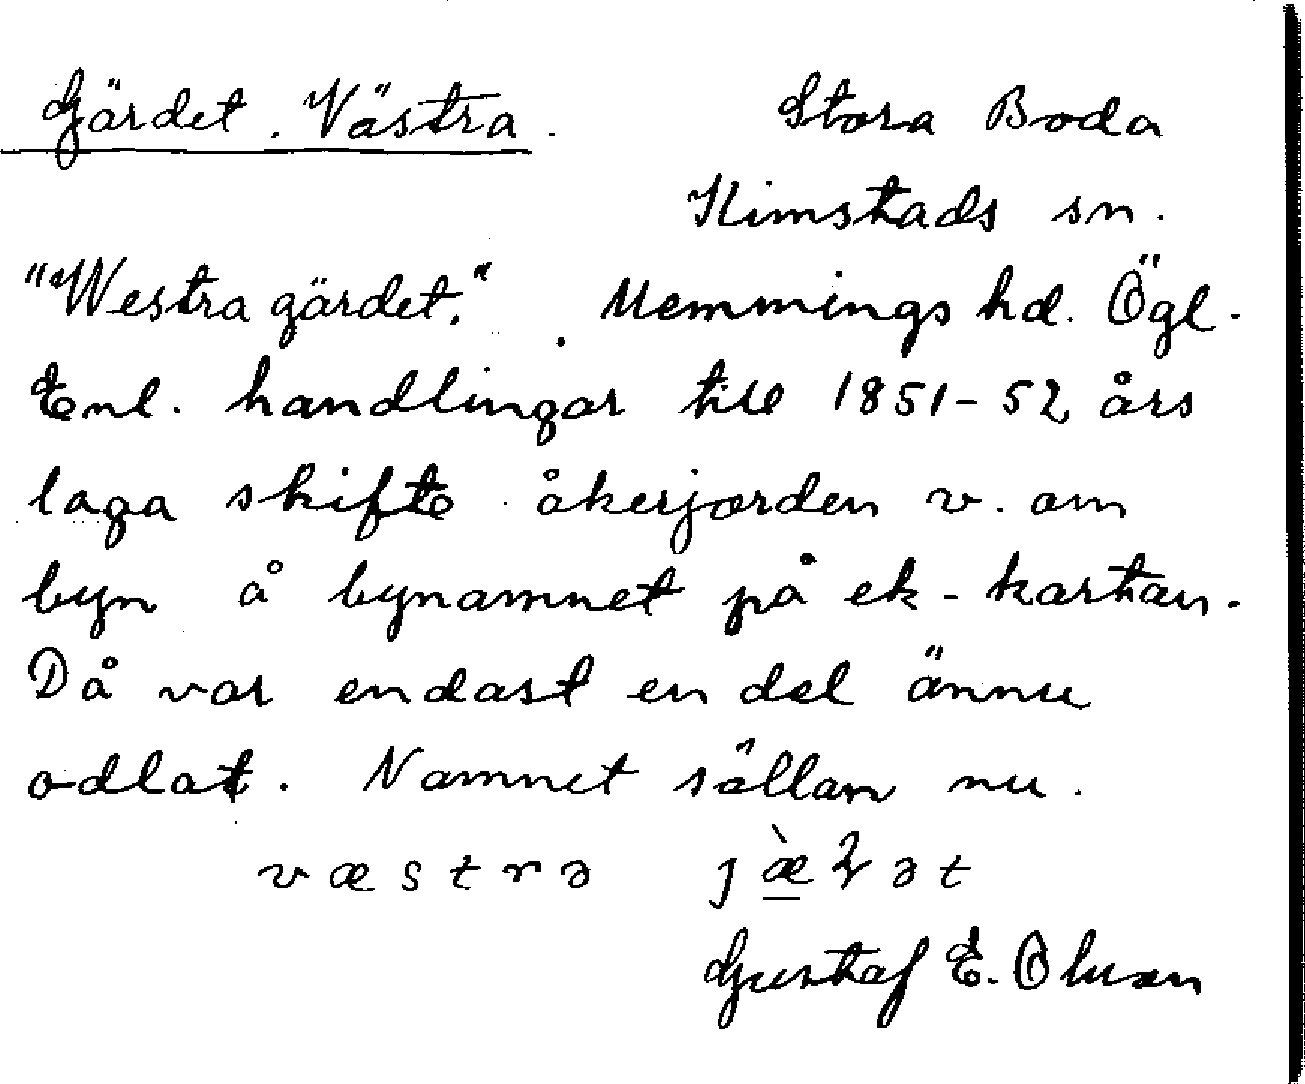 Gärdet. Västra.
Stora Boda
Kimstads sn.
"Westra gärdet." Memmings hd. Ögl.
Enl. handlingar till 1851-52 års
laga skifte åkerjorden v. om
byn å bynamnet på ek-kartan.
Då var endast en del ännu
odlat. Namnet sällan nu.
væstrə
Gustaf E. Olsson